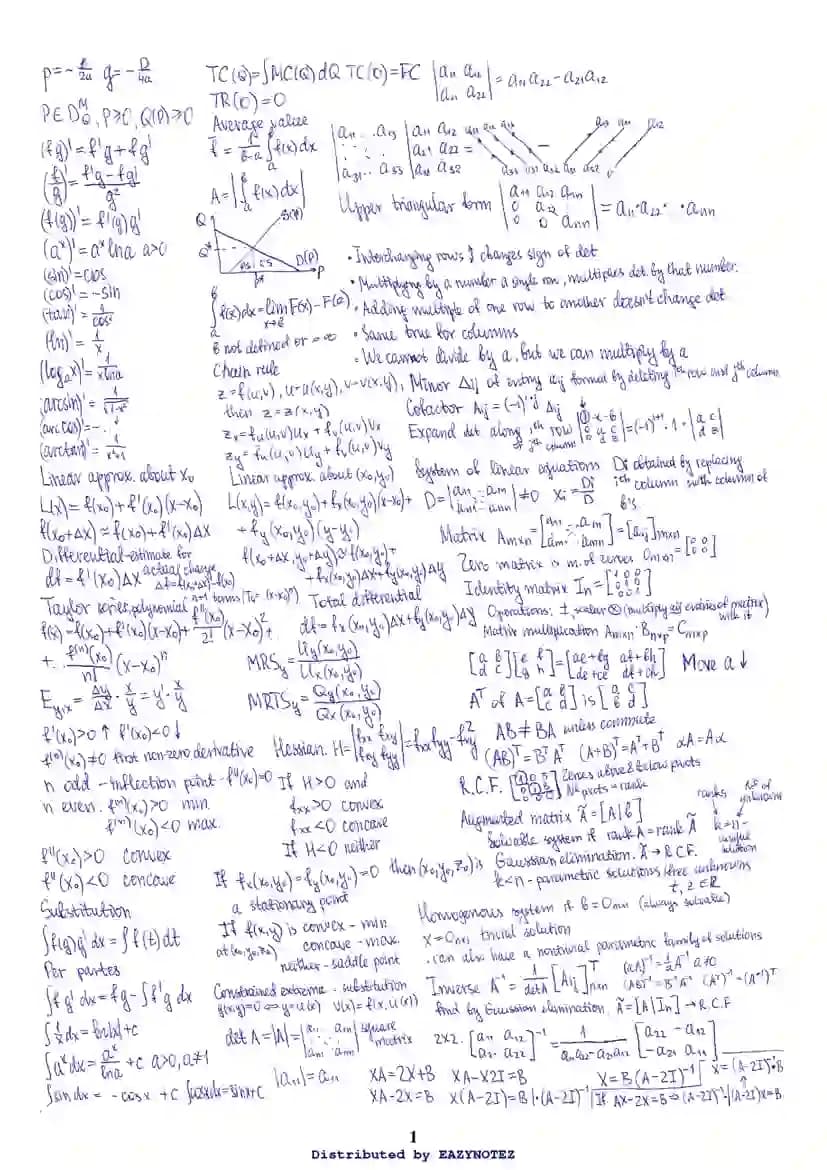 p=-b/2a q=-D/4a
P∈D_Q^M, P≥0, Q(P)≥0
(fg)'=f'g+fg'
(f/g)'=(f'g-fg')/g²
(f(g))'=f'(g)g'
(a^x)'=a^x lna a>0
(sin)'=cos
(cos)'=-sin
(tan)'=1/cos²
(ln)'=1/x
(log_a x)'=1/(x lna)
(arcsin)'=1/√(1-x²)
(arccos)'=-..↓
(arctan)'=1/(x²+1)
Linear approx. about x₀
L(x)=f(x₀)+f'(x₀)(x-x₀)
f(x₀+Δx)≈f(x₀)+f'(x₀)Δx
Differential-estimate for
actual change
df=f'(x₀)Δx Δf=f(x₀+Δx)-f(x₀)
Taylor series, polynomial n+1 terms
f(x)=f(x₀)+f'(x₀)(x-x₀)+f''(x₀)/2! (x-x₀)²+
+..f⁽ⁿ⁾(x₀)/n! (x-x₀)ⁿ
E_y,x=Δy/Δx·x/y=y'·x/y
f'(x₀)>0↑ f'(x₀)<0↓
f⁽ⁿ⁾(x₀)≠0 first non-zero derivative
n odd - inflection point - f''(x₀)=0
n even. f⁽ⁿ⁾(x₀)>0 min.
f⁽ⁿ⁾(x₀)<0 max.
f''(x₀)>0 convex
f''(x₀)<0 concave
Substitution
∫f(g)g'dx=∫f(t)dt
Per partes
∫fg'dx=fg-∫f'g dx
∫1/x dx=ln|x|+c
∫a^x dx=a^x/lna +c a>0,a≠1
∫sin dx = -cosx +c ∫cosxdx=sinx+c
TC(Q)=∫MC(Q)dQ TC(0)=FC
TR(0)=0
Average value
f̄=1/(b-a)∫_a^b f(x)dx
A=|∫_a^b f(x)dx|
Q S(P)
Q* PS CS D(P)
P* P
∫_a^b f(x)dx=lim_{x→b} F(x)-F(a)
b not defined or =∞
Chain rule
z=f(u,v), u=u(x,y), v=v(x,y),
then z=z(x,y)
z_x=f_u(u,v)u_x+f_v(u,v)v_x
z_y=f_u(u,v)u_y+f_v(u,v)v_y
Linear approx. about (x₀,y₀)
L(x,y)=f(x₀,y₀)+f_x(x₀,y₀)(x-x₀)+
+f_y(x₀,y₀)(y-y₀)
f(x₀+Δx,y₀+Δy)≈f(x₀,y₀)+
+f_x(x₀,y₀)Δx+f_y(x₀,y₀)Δy
Total differential
df=f_x(x₀,y₀)Δx+f_y(x₀,y₀)Δy
MRS_y=U_y(x₀,y₀)/U_x(x₀,y₀)
MRTS_y=Q_y(x₀,y₀)/Q_x(x₀,y₀)
Hessian. H=|f_xx f_xy; f_xy f_yy|=f_xx f_yy-f_xy²
If H>0 and
f_xx>0 convex
f_xx<0 concave
If H<0 neither
If f_x(x₀,y₀)=f_y(x₀,y₀)=0 then (x₀,y₀,z₀) is
a stationary point
If f(x,y) is convex - min
at(x₀,y₀,z₀) concave - max.
neither - saddle point
Constrained extreme - substitution
g(x,y)=0⇔y=u(x) v(x)=f(x,u(x))
det A=|A|=|a₁₁ a₁n; an₁ ann| square
matrix
|a₁₁|=a₁₁
|a₁₁ a₁₂; a₂₁ a₂₂|=a₁₁a₂₂-a₂₁a₁₂
|a₁₁...a₁₃; a₃₁...a₃₃|
Upper triangular form |a₁₁ a₁₂ a₁n; 0 a₂₂; 0 0 ann|=a₁₁·a₂₂· ·ann
• Interchanging rows changes sign of det
• Multiplying by a number a single row, multiplies det. by that number.
• Adding multiple of one row to another doesn't change det
• Same true for columns
• We cannot divide by a, but we can multiply by a
Minor Δij of entry aij formed by deleting iᵗʰ row and jᵗʰ column
Cofactor Aij=(-1)^(i+j) Δij
Expand det along iᵗʰ row
or jᵗʰ column
System of linear equations Di obtained by replacing
iᵗʰ column with column of
b's
D=|a₁₁...a₁n; an₁...ann|≠0 xi=Di/D
Matrix Amxn=[a₁₁...a₁n; am₁...amn]=[aij]mxn
Zero matrix is m. of zeroes 0mxn=[0 0; 0 0]
Identity matrix In=[1 0 0; 0 1 0; 0 0 1]
Operations: ±, scalar ⊗ (multiply all entries of matrix
with it)
Matrix multiplication Amxn·Bnxp=Cmxp
[a b; d c][e f; g h]=[ae+bg af+bh; de+ce df+ch] Move a↓
Aᵀ of A=[a b; c d] is [a c; b d]
AB≠BA unless commute
(AB)ᵀ=BᵀAᵀ (A+B)ᵀ=Aᵀ+Bᵀ αA=Aα
R.C.F. Zeroes above & below pivots
Nº pivots=rank
Augmented matrix Ã=[A|b] ranks Nº of
unknowns
Solvable system if rank A=rank Ã k=n-
unique
solution
Gaussian elimination. Ã→R.C.F.
k<n - parametric solutions free unknowns
t, z∈R
Homogenous system if b=0mx1 (always solvable)
x=0nx1 trivial solution
• can also have a nontrivial parametric family of solutions
Inverse A⁻¹=1/detA [Aij]ᵀnxn (aA)⁻¹=1/a A⁻¹ a≠0
(AB)⁻¹=B⁻¹A⁻¹ (Aᵀ)⁻¹=(A⁻¹)ᵀ
find by Gaussian elimination. Ã=[A|In]→R.C.F
2x2. [a₁₁ a₁₂; a₂₁ a₂₂]⁻¹=1/(a₁₁a₂₂-a₂₁a₁₂) [a₂₂ -a₁₂; -a₂₁ a₁₁]
XA=2X+B XA-X2I=B X=B(A-2I)⁻¹ X=(A-2I)⁻¹B
XA-2X=B X(A-2I)=B|·(A-2I)⁻¹ If AX-2X=B⇒(A-2I)⁻¹·|(A-2I)X=B.
1
Distributed by EAZYNOTEZ